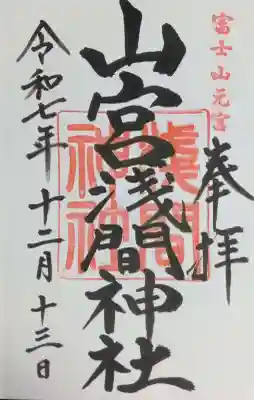 富士山元宮
奉拝
山宮浅間神社
浅間神社
令和七年 十二月 十三日